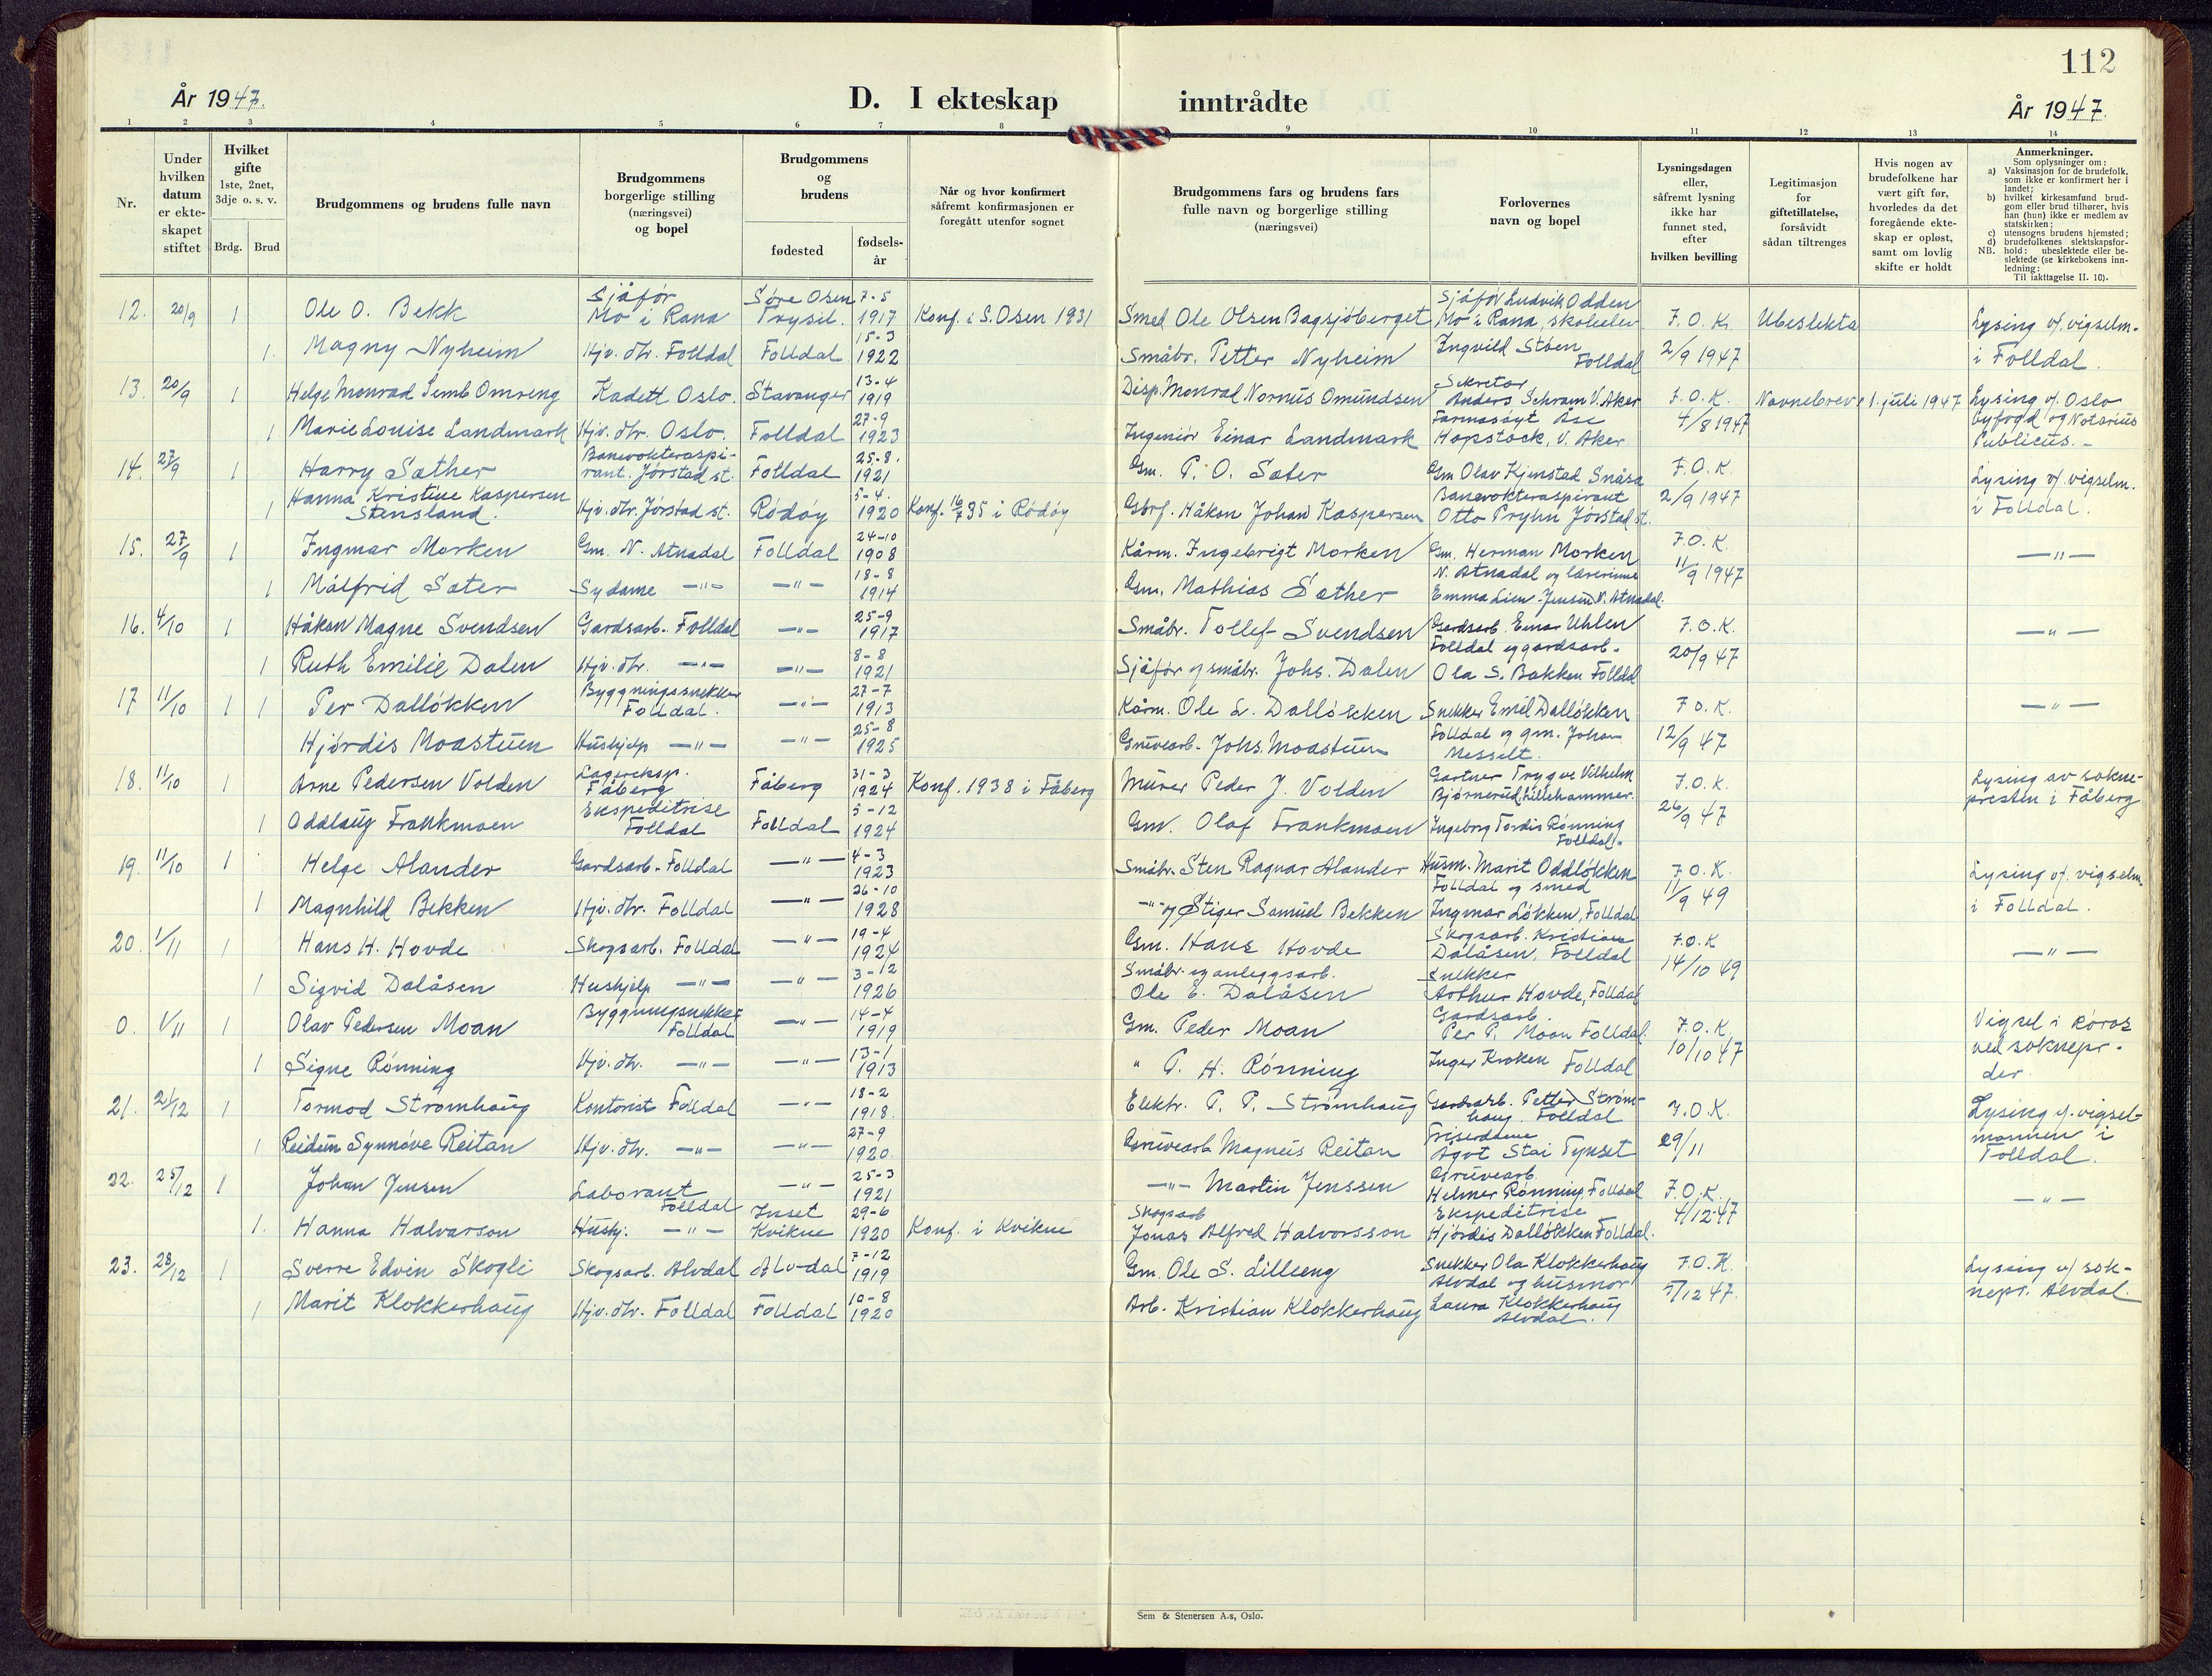 112
År 1947.
D. I ekteskap
inntrådte
År 1947.
1 2 3 4 5 6 7 8 9 10 11 12 13 14
Nr.
Under hvilken datum er ekte-skapet stiftet
Hvilket gifte 1ste, 2net, 3dje o. s. v.
Brdg. Brud
Brudgommens og brudens fulle navn
Brudgommens borgerlige stilling (næringsvei) og bopel
Brudgommens og brudens
fødested
fødsels-år
Når og hvor konfirmert såfremt konfirmasjonen er foregått utenfor sognet
Brudgommens fars og brudens fars fulle navn og borgerlige stilling (næringsvei)
Forlovernes navn og bopel
Lysningsdagen eller, såfremt lysning ikke har funnet sted, efter hvilken bevilling
Legitimasjon for giftetillatelse, forsåvidt sådan tiltrenges
Hvis nogen av brudefolkene har vært gift før, hvorledes da det foregående ekte-skap er opløst, samt om lovlig skifte er holdt
Anmerkninger.
Som oplysninger om:
a) Vaksinasjon for de brudefolk, som ikke er konfirmert her i landet;
b) hvilket kirkesamfund brud-gom eller brud tilhører, hvis han (hun) ikke er medlem av statskirken;
c) utensogns brudens hjemsted;
d) brudefolkenes slektskapsfor-hold: ubeslektede eller be-slektede (se kirkebokens inn-ledning:
NB. Til iakttagelse II. 10).
12. 20/9 1 Ole O. Bekk Sjåfør Mo i Rana Søre Osen Trysil. 7-5 1917 Konf. i S. Osen 1931 Smed Ole Olsen Bagsjöberget Sjåfør Ludvik Odden Mo i Rana, skoleelev F.O.K. Ubeslekta Lysing v/ vigselm.
1. Magny Nyheim Hjv. dtr. Folldal Folldal 15-3 1922 Småbr. Petter Nyheim Ingvild Støen Folldal 2/9 1947 i Folldal.
13. 20/9 1 Helge Monrad Semb Omreng Kadett Oslo. Stavanger 13-4 1919 Disp. Monrad Nornüs Omundsen Sekretær Anders Schram V. Aker F.O.K. Navnebrev 1. juli 1947 Lysing v/ Oslo
1 Marie Louise Landmark Hjv. dtr. Oslo. Folldal 27-9 1923 Ingeniør Einar Landmark Farmasøyt Åse Hopstock, V. Aker 4/8 1947 byfogd og Notarius Publicus.-
14. 27/9 1 Harry Sæther Banevokteraspi-rant. Jørstad st. Folldal 25-8. 1921 Gm. P. O. Sæter Gm Olav Kjenstad Snåsa F.O.K. Lysing v/ vigselm.
1 Hanna Kristine Kaspersen Stensland. Hjv. dtr. Jørstad st. Rødøy 5-4. 1920 Konf. 16/7 35 i Rødøy Gbrf. Håkon Johan Kaspersen Banevokteraspirant Otto Pryhn Jørstad st. 2/9 1947 i Folldal.
15. 27/9 1 Ingmar Morken Gm. N. Atnadal Folldal 24-10 1908 Kårm. Ingebrigt Morken Gm. Herman Morken F.O.K. —"—
1 Målfrid Sæter Sydame —"— —"— 18-8 1914 Gm. Mathias Sæther N. Atnadal og lærerinne Emma Lien-Jensen N. Atnadal. 11/9 1947
16. 4/10 1 Håkon Magne Svendsen Gardsarb. Folldal —"— 25-9 1917 Småbr. Tollef Svendsen Gardsarb. Einar Uhlen F.O.K. —"—
1 Ruth Emilie Dalen Hjv. dtr. —"— —"— 8-8 1921 Sjåfør og småbr. Johs. Dalen Folldal og gardsarb. Ola S. Bakken Folldal 20/9 47
17 11/10 1 1 Per Dalløkken Byggningssnekker Folldal. —"— 27-7 1913 Kårm. Ole L. Dalløkken Snekker Emil Dalløkken F.O.K. —"—
Hjørdis Moastuen Hushjelp —"— —"— 25-8 1925 Gruvearb. Johs. Moastuen Folldal og gm. Johan Messelt. 12/9 47
18. 11/10 1 Arne Pedersen Volden Lagereksp. Fåberg Fåberg 31-3 1924 Konf. 1938 i Fåberg Murer Peder J. Volden Gartner Trygve Vilhelm Bjørnerud, Lillehammer. F.O.K. Lysing av sokne-
1 Oddlaug Frankmoen Ekspeditrise Folldal Folldal 5-12 1924 Gm. Olaf Frankmoen Ingeborg Tordis Rønning Folldal. 26/9 47 presten i Fåberg
19. 11/10 1 Helge Alander Gardsarb. Folldal —"— 4-3 1923 Småbr. Sten Ragnar Alander Husm. Marit Oddløkken F.O.K. Lysing v/ vigselm.
1 Magnhild Bekken Hjv. dtr. Folldal —"— 26-10 1928 —"— og Stiger Samuel Bekken Folldal og smed Ingmar Løkken, Folldal 11/9 49 i Folldal.
20. 1/11 1 Hans H. Hovde Skogsarb. Folldal —"— 19-4 1924 Gm. Hans Hovde Skogsarb. Kristian Dalåsen, Folldal F.O.K —"—
1 Sigrid Dalåsen Hushjelp —"— —"— 3-12 1926 Småbr. og anleggsarb. Ole E. Dalåsen Snekker Arthur Hovde, Folldal 14/10 49
0. 1/11 1 Olav Pedersen Moan Byggningssnekker Folldal —"— 14-4 1919 Gm. Peder Moan Gardsarb. Per P. Moan Folldal. F.O.K. Vigsel i Røros
1 Signe Rønning Hjv. dtr. —"— —"— 13-1 1913 " P. H. Rønning Inger Kroken Folldal 10/10 47 ved soknepr. der.
21. 21/12 1 Tormod Strømhaug Kontorist Folldal —"— 18-2 1918. Elektr. P. P. Strømhaug Gardsarb. Petter Strøm-haug Folldal F.O.K. Lysing v/ vigsel-
1 Reidun Synnøve Reitan Hjv. dtr. —"— —"— 27-9 1920. Gruvearb Magnus Reitan Friserdame Ågot Stai Tynset 29/11 mannen i Folldal.
22. 25/12 1 Johan Jensen Laborant Folldal —"— 25-3 1921 —"— Martin Jenssen Gruvearb. Helmer Rønning, Folldal F.O.K. —"—
1. Hanna Halvarson Hushj. —"— Inset Kvikne 29-6 1920 Konf. i Kvikne Skogsarb Jonas Alfred Halvorsson Ekspeditrise Hjørdis Dalløkken Folldal. 4/12 47
23. 28/12 1 Sverre Edvin Skogli Skogsarb. Alvdal Alvdal 7-12 1919 Gm. Ole S. Lilleeng Snekker Ola Klokkerhaug F.O.K. Lysing v/ sok-
1 Marit Klokkerhaug Hjv. dtr. Folldal Folldal 10-8 1920 Arb. Kristian Klokkerhaug Alvdal og husmor Laura Klokkerhaug Alvdal. 5/12 47. nepr. Alvdal.
Sem & Stenersen A.s, Oslo.